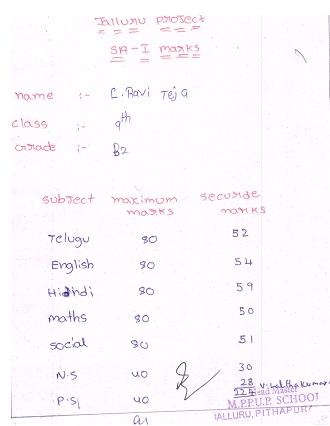 Jalluru project
SA-I marks
name :- L. Ravi Teja
class :- 9th
Grade :- B2
subject maximum marks securde marks
Telugu 80 52
English 80 54
Hindi 80 59
maths 80 50
social 80 51
N.S 40 30
P.S 40 28
324
Head Master
M.P.P.U.P. SCHOOL
JALLURU, PITHAPUR